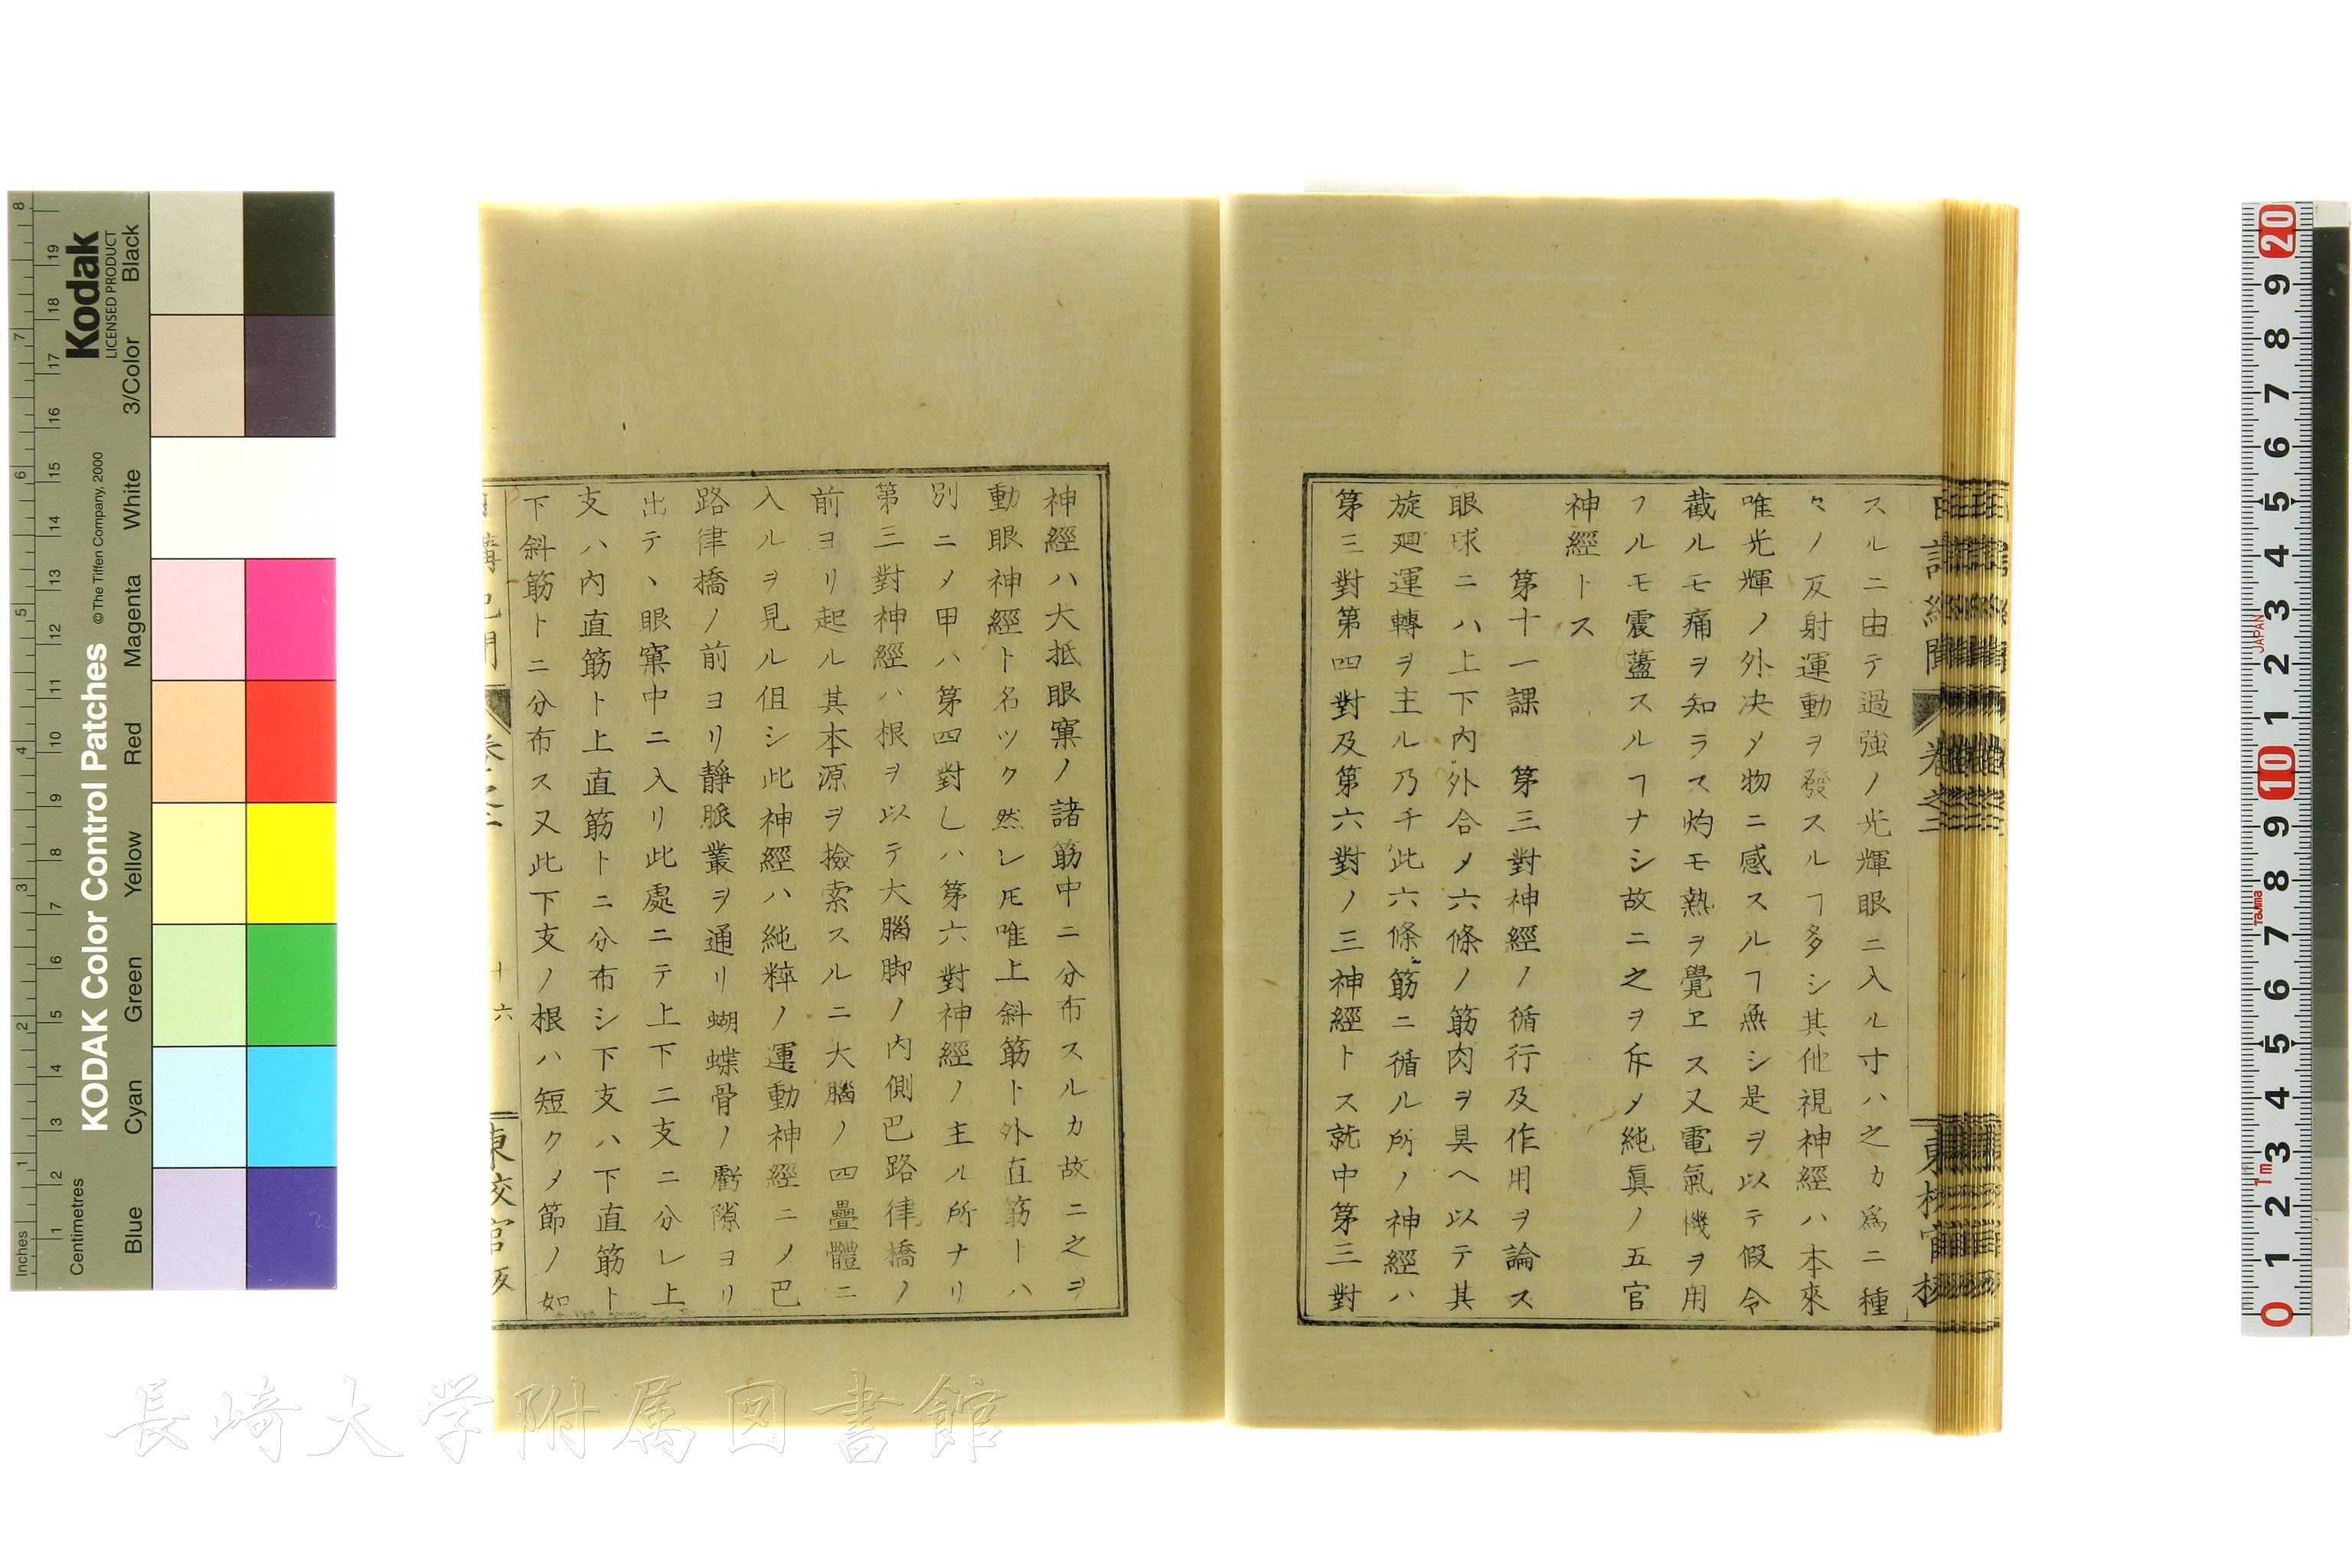 スルニ由テ過強ノ光輝眼ニ入ル寸ハ之カ爲ニ種
々ノ反射運動ヲ發スルヿ多シ其他視神經ハ本來
唯光輝ノ外决メ物ニ感スルヿ無シ是ヲ以テ假令
截ルモ痛ヲ知ラス灼モ熱ヲ覺ヱス又電氣機ヲ用
フルモ震蘯スルヿナシ故ニ之ヲ斥メ純眞ノ五官
神經トス
第十一課 第三對神經ノ循行及作用ヲ論ス
眼球ニハ上下内外合メ六條ノ筋肉ヲ具ヘ以テ其
旋廻運轉ヲ主ル乃チ此六條筋ニ循ル所ノ神經ハ
第三對第四對及第六對ノ三神經トス就中第三對
神經ハ大抵眼窠ノ諸筋中ニ分布スルカ故ニ之ヲ
動眼神經ト名ツク然レ𪜈唯上斜筋ト外直筋トハ
別ニメ甲ハ第四對乚ハ第六對神經ノ主ル所ナリ
第三對神經ハ根ヲ以テ大腦脚ノ内側巴路律橋ノ
前ヨリ起ル其本源ヲ撿索スルニ大腦ノ四疊體ニ
入ルヲ見ル伹シ此神經ハ純粹ノ運動神經ニノ巴
路律橋ノ前ヨリ靜脈叢ヲ通リ蝴蝶骨ノ罅隙ヨリ
出テヽ眼窠中ニ入リ此處ニテ上下二支ニ分レ上
支ハ内直筋ト上直筋トニ分布シ下支ハ下直筋ト
下斜筋トニ分布ス又此下支ノ根ハ短クメ節ノ如
卷之二
十六
東校官版
卷之二
東校官板
KODAK Color Control Patches
Kodak
LICENSED PRODUCT
© The Tiffen Company, 2000
Inches
Centimetres
Blue Cyan Green Yellow Red Magenta White 3/Color Black
1 2 3 4 5 6 7 8
1 2 3 4 5 6 7 8 9 10 11 12 13 14 15 16 17 18 19
20 9 8 7 6 5 4 3 2 1 10 9 8 7 6 5 4 3 2 1 0
JAPAN
Tajima
1m
長崎大学附属図書館